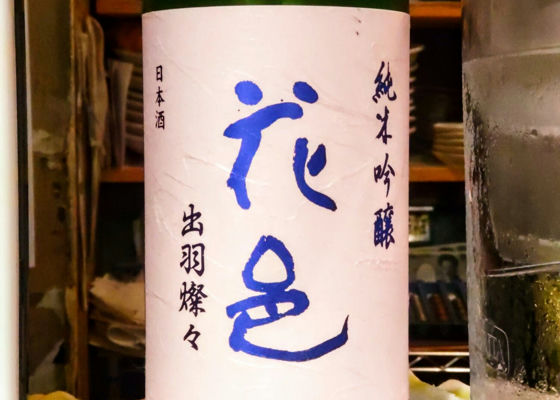 純米吟醸
花邑
日本酒
出羽燦々